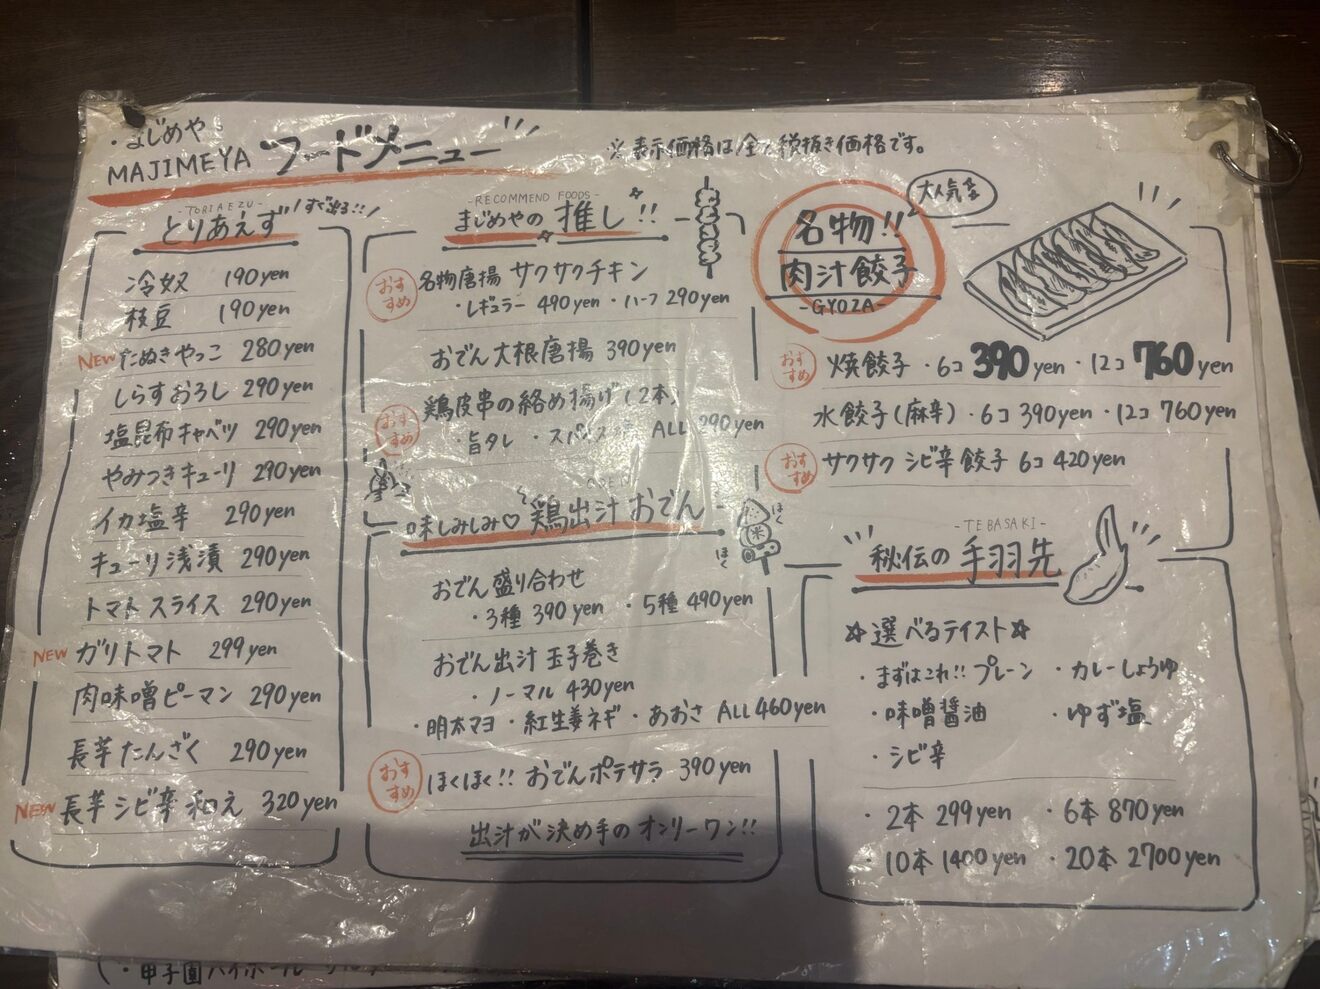 ・まじめや
MAJIMEYA フードメニュー
※表示価格は全て税抜き価格です。
-TORIAEZU-
とりあえず
すぐ出る!!
冷奴 190yen
枝豆 190yen
NEW たぬきやっこ 280yen
しらすおろし 290yen
塩昆布キャベツ 290yen
やみつきキューリ 290yen
イカ塩辛 290yen
キューリ浅漬 290yen
トマトスライス 290yen
NEW ガリトマト 299yen
肉味噌ピーマン 290yen
長芋たんざく 290yen
NEW 長芋シビ辛和え 320yen
-RECOMMEND FOODS-
まじめやの 推し!!
おすすめ 名物唐揚 サクサクチキン
・レギュラー 490yen ・ハーフ 290yen
おでん大根唐揚 390yen
おすすめ 鶏皮串の絡め揚げ(2本)
・旨タレ ・スパイス ALL 290yen
味しみしみ♡ 鶏出汁おでん
ほく
ほく
おでん盛り合わせ
・3種 390yen ・5種 490yen
おでん出汁 玉子巻き
・ノーマル 430yen
・明太マヨ ・紅生姜ネギ ・あおさ ALL 460yen
おすすめ ほくほく!! おでんポテサラ 390yen
出汁が決め手の オンリーワン!!
名物!!
肉汁餃子
-GYOZA-
おすすめ 焼餃子 ・6コ 390yen ・12コ 760yen
水餃子(麻辛) ・6コ 390yen ・12コ 760yen
おすすめ サクサク シビ辛餃子 6コ 420yen
-TEBASAKI-
秘伝の 手羽先
☆選べるテイスト☆
・まずはこれ!! プレーン ・カレーしょうゆ
・味噌醤油 ・ゆず塩
・シビ辛
・2本 299yen ・6本 870yen
・10本 1400yen ・20本 2700yen
・甲子園ハイボール